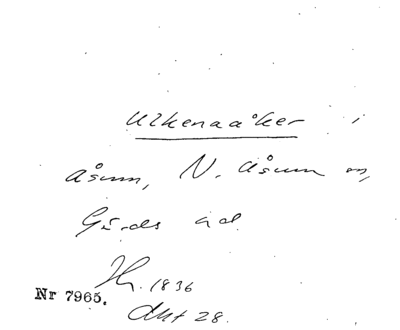 Ulkenaåker i
Åsum, N. Åsum sn,
Gärds hd.
Jh. 1836
Akt 28.
Nr 7965.